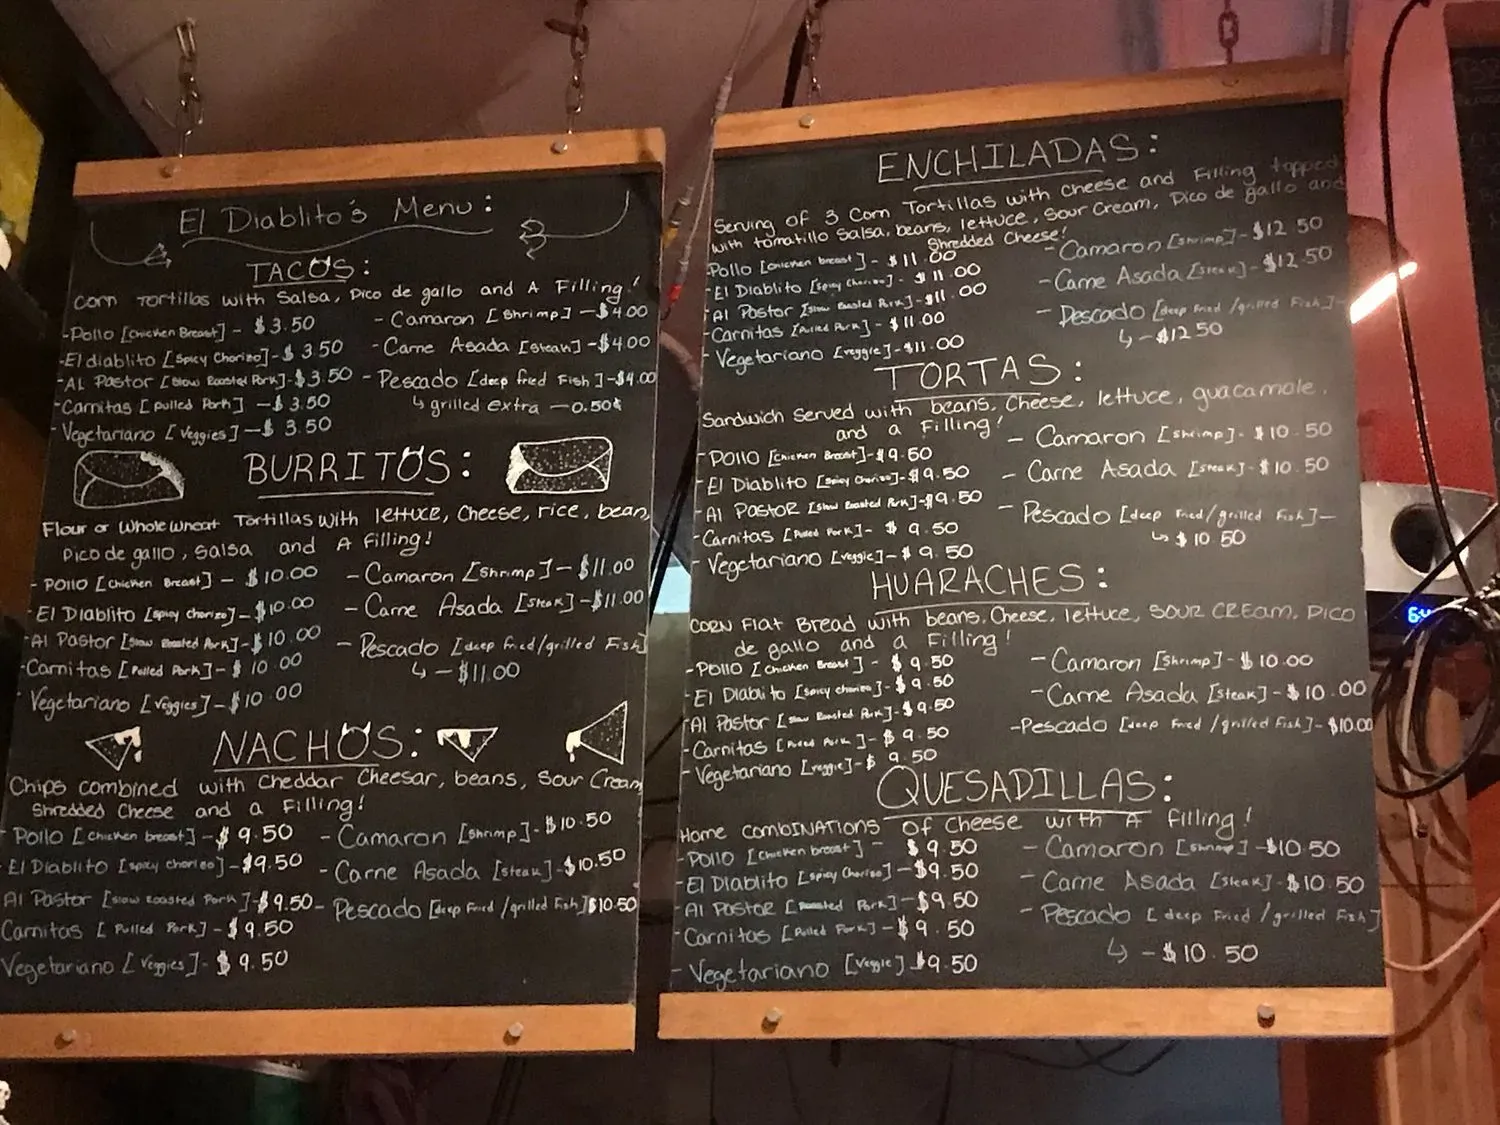 El Diablito's Menu:
TACOS:
Corn Tortillas with Salsa, Pico de gallo and A Filling!
-Pollo [Chicken Breast] - $3.50
-El diablito [Spicy Chorizo]-$3.50
-AL Pastor [Slow Roasted Pork]-$3.50
-Carnitas [Pulled Pork] -$3.50
-Vegetariano [Veggies]-$3.50
- Camaron [Shrimp] -$4.00
- Carne Asada [Steak] -$4.00
- Pescado [deep fried Fish]-$4.00
↳ grilled extra -0.50¢
BURRITOS:
Flour or Whole wheat Tortillas with lettuce, Cheese, rice, bean,
Pico de gallo, Salsa and A Filling!
- Pollo [Chicken Breast] - $10.00
- El Diablito [Spicy Chorizo]-$10.00
-Al Pastor [Slow Roasted Pork]-$10.00
-Carnitas [Pulled Pork]-$10.00
-Vegetariano [Veggies]-$10.00
- Camaron [Shrimp] - $11.00
- Carne Asada [Steak] -$11.00
- Pescado [deep fried/grilled Fish]
↳ -$11.00
NACHOS:
Chips combined with Cheddar Cheesar, beans, Sour Cream
Shredded Cheese and a Filling!
Pollo [Chicken breast]-$9.50
El Diablito [Spicy Chorizo]-$9.50
Al Pastor [Slow Roasted Pork]-$9.50
Carnitas [Pulled Pork]-$9.50
Vegetariano [Veggies]-$9.50
- Camaron [Shrimp]-$10.50
- Carne Asada [Steak]-$10.50
- Pescado [deep Fried /grilled Fish]$10.50
ENCHILADAS:
Serving of 3 Corn Tortillas with Cheese and Filling topped
with tomatillo Salsa, beans, lettuce, Sour Cream, Pico de gallo and
Shredded Cheese!
Pollo [Chicken breast]-$11.00
-El Diablito [Spicy Chorizo]- $11.00
-Al Pastor [Slow Roasted Pork]-$11.00
-Carnitas [Pulled Pork]-$11.00
- Vegetariano [veggie]-$11.00
- Camaron [Shrimp]-$12.50
- Carne Asada [Steak]-$12.50
- Pescado [deep fried /grilled Fish]-
↳ -$12.50
TORTAS:
Sandwich Served with beans, Cheese, lettuce, guacamole,
and a Filling!
-Pollo [Chicken Breast]-$9.50
-El Diablito [Spicy Chorizo]-$9.50
-Al Pastor [Slow Roasted Pork]-$9.50
-Carnitas [Pulled Pork]- $9.50
- Vegetariano [Veggie]-$9.50
- Camaron [Shrimp]-$10.50
- Carne Asada [Steak]-$10.50
- Pescado [deep Fried/grilled Fish]-
↳ $10.50
HUARACHES:
CORN Flat Bread with beans, Cheese, lettuce, SOUR CREAM, PICO
de gallo and a Filling!
-Pollo [Chicken Breast] - $9.50
-El Diablito [Spicy Chorizo]-$9.50
-Al Pastor [Slow Roasted Pork]-$9.50
-Carnitas [Pulled Pork]-$9.50
- Vegetariano [veggie]-$9.50
- Camaron [Shrimp]-$10.00
- Carne Asada [Steak]-$10.00
-Pescado [deep Fried /grilled Fish]-$10.00
QUESADILLAS:
Home COMBINATIONS of Cheese with A Filling!
-Pollo [Chicken breast] - $9.50
-El Diablito [Spicy Chorizo]-$9.50
-Al Pastor [Roasted Pork]-$9.50
-Carnitas [Pulled Pork]-$9.50
- Vegetariano [Veggie]-$9.50
- Camaron [Shrimp]-$10.50
- Carne Asada [Steak]-$10.50
- Pescado [deep Fried /grilled Fish]
↳ -$10.50